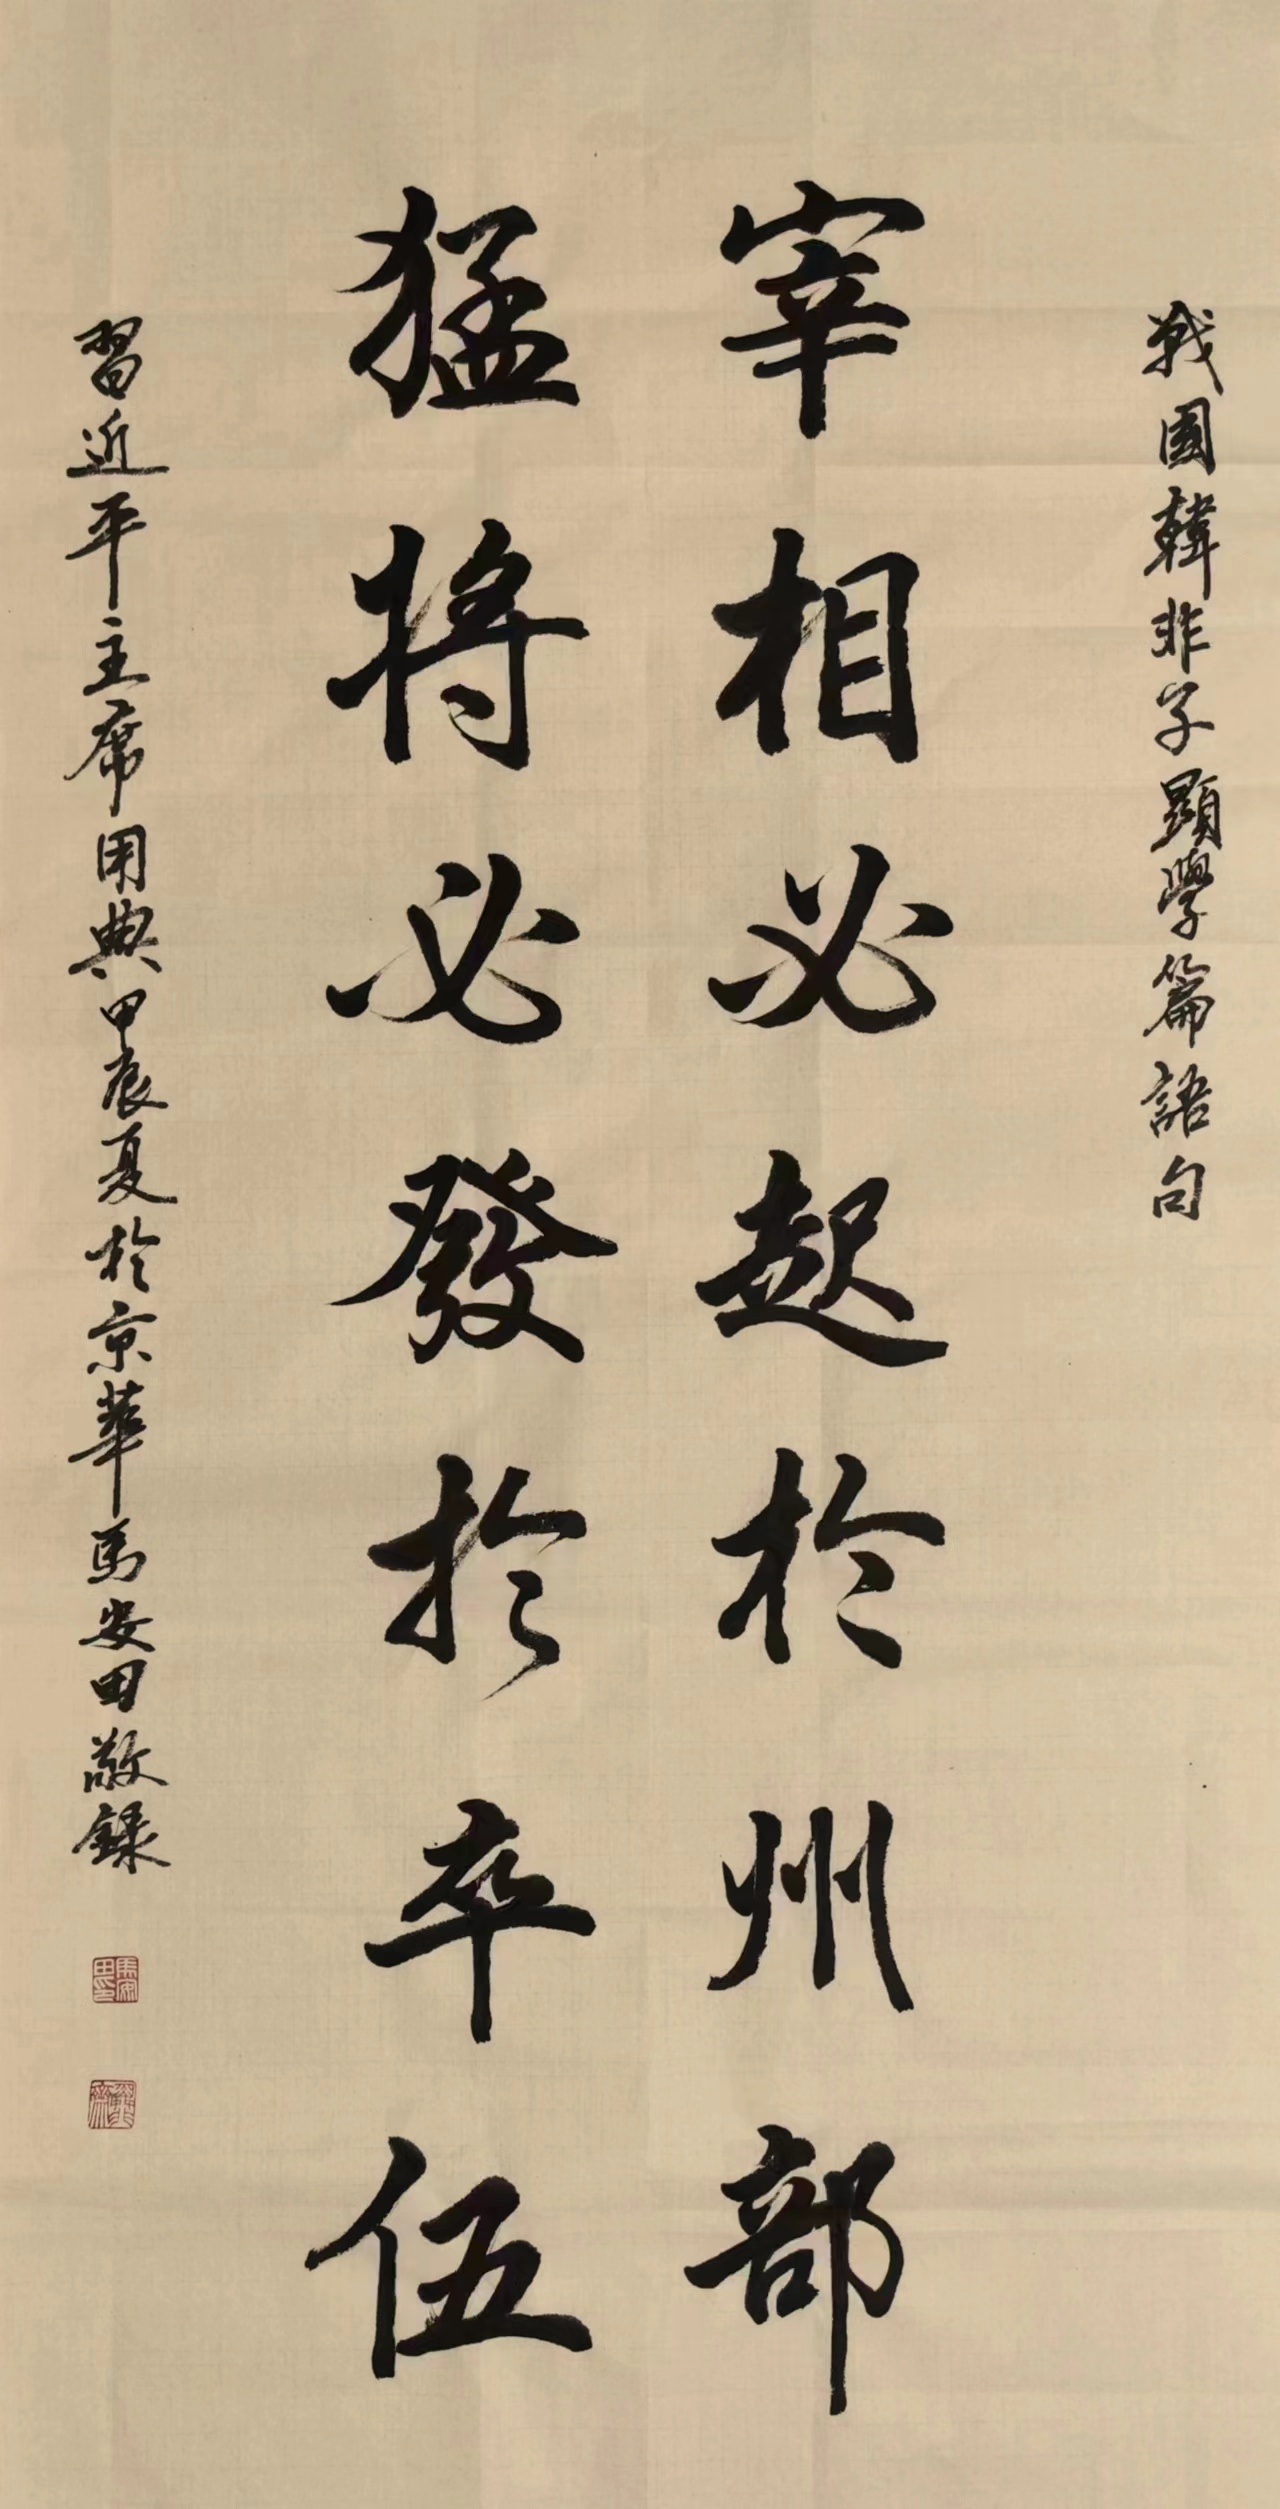 戰國韓非子顯學篇語句
宰相必起於州部
猛将必發於卒伍
習近平主席用典甲辰夏於京華馬安田敬錄
馬安田印